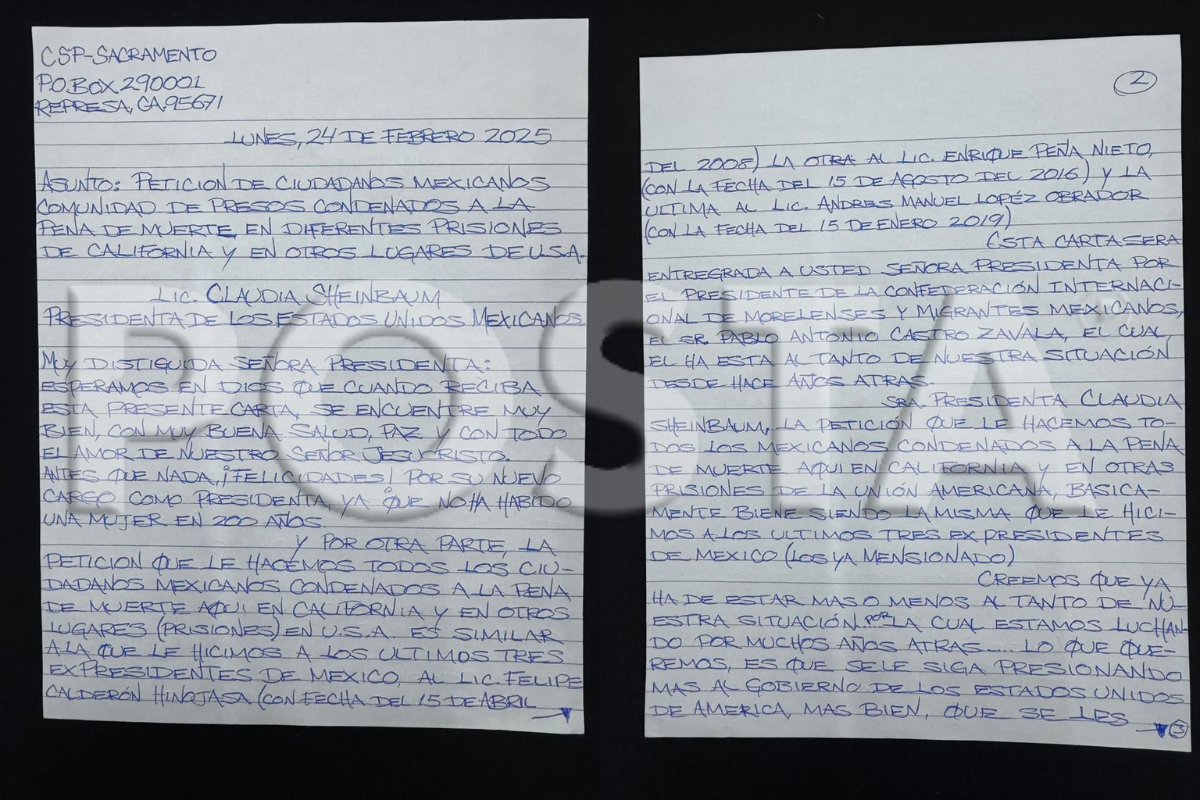 CSP-SACRAMENTO
P.O.BOX.290001
REPRESA, CA, 95671
LUNES, 24 DE FEBRERO 2025
ASUNTO: PETICION DE CIUDADANOS MEXICANOS
COMUNIDAD DE PRESOS CONDENADOS A LA
PENA DE MUERTE, EN DIFERENTES PRISIONES
DE CALIFORNIA Y EN OTROS LUGARES DE U.S.A.
LIC. CLAUDIA SHEINBAUM
PRESIDENTA DE LOS ESTADOS UNIDOS MEXICANOS
MUY DISTIGUIDA SEÑORA PRESIDENTA:
ESPERAMOS EN DIOS QUE CUANDO RECIBA
ESTA PRESENTE CARTA, SE ENCUENTRE MUY
BIEN, CON MUY BUENA SALUD, PAZ Y CON TODO
EL AMOR DE NUESTRO SEÑOR JESUCRISTO.
ANTES QUE NADA, ¡FELICIDADES! POR SU NUEVO
CARGO COMO PRESIDENTA, YA QUE NO HA HABIDO
UNA MUJER EN 200 AÑOS.
Y POR OTRA PARTE, LA
PETICION QUE LE HACEMOS TODOS LOS CIU-
DADANOS MEXICANOS CONDENADOS A LA PENA
DE MUERTE AQUI EN CALIFORNIA Y EN OTROS
LUGARES (PRISIONES) EN U.S.A. ES SIMILAR
A LA QUE LE HICIMOS A LOS ULTIMOS TRES
EXPRESIDENTES DE MEXICO, AL LIC. FELIPE
CALDERÓN HINOJASA (CON FECHA DEL 15 DE ABRIL
2
DEL 2008) LA OTRA AL LIC. ENRIQUE PEÑA NIETO,
(CON LA FECHA DEL 15 DE AGOSTO DEL 2016) Y LA
ULTIMA AL LIC. ANDRES MANUEL LOPÉZ OBRADOR
(CON LA FECHA DEL 15 DE ENERO 2019)
ESTA CARTA SERA
ENTREGRADA A USTED SEÑORA PRESIDENTA POR
EL PRESIDENTE DE LA CONFEDERACIÓN INTERNACI-
ONAL DE MORELENSES Y MIGRANTES MEXICANOS,
EL SR. PABLO ANTONIO CASTRO ZAVALA, EL CUAL,
EL HA ESTA AL TANTO DE NUESTRA SITUACIÓN
DESDE HACE AÑOS ATRAS.
SRA. PRESIDENTA CLAUDIA
SHEINBAUM, LA PETICIÓN QUE LE HACEMOS TO-
DOS LOS MEXICANOS CONDENADOS A LA PENA
DE MUERTE AQUI EN CALIFORNIA Y EN OTRAS
PRISIONES DE LA UNIÓN AMERICANA, BASICA-
MENTE BIENE SIENDO LA MISMA QUE LE HICI-
MOS A LOS ULTIMOS TRES EXPRESIDENTES
DE MEXICO (LOS YA MENSIONADO)
CREEMOS QUE YA
HA DE ESTAR MAS O MENOS AL TANTO DE NU-
ESTRA SITUACIÓN POR LA CUAL ESTAMOS LUCHAN-
DO POR MUCHOS AÑOS ATRAS..... LO QUE QUE-
REMOS, ES QUE SELE SIGA PRESIONANDO
MAS AL GOBIERNO DE LOS ESTADOS UNIDOS
DE AMERICA, MAS BIEN, QUE SE LES
3
POSTA